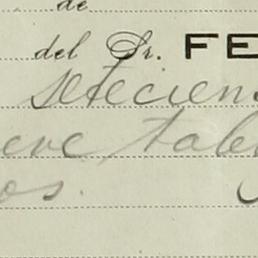 de
del Sr. FE
setecien
eve tale
os.